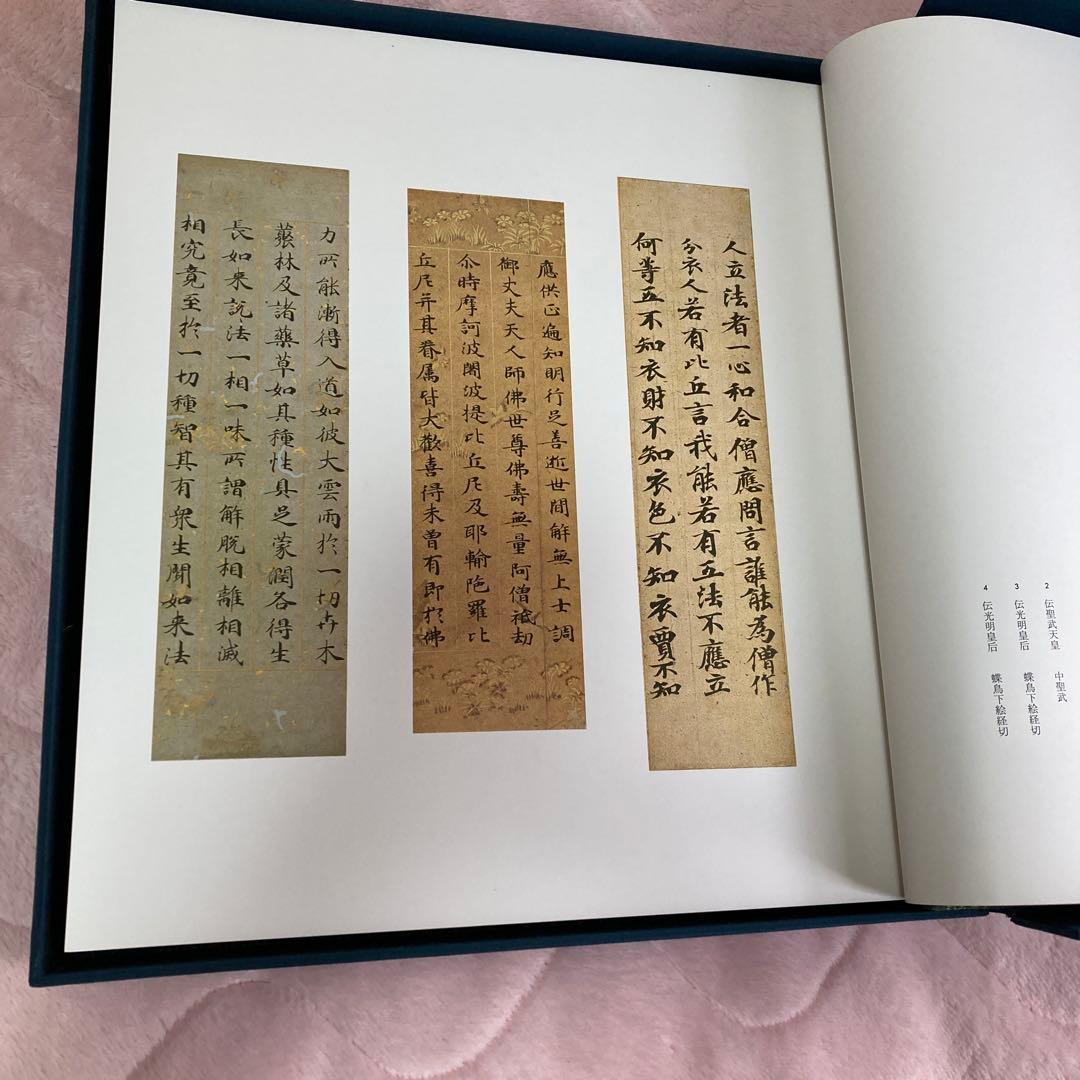 人立法者一心和合僧應問言誰能為僧作
分衣人若有比丘言我能若有五法不應立
何等五不知衣財不知衣色不知衣賈不知
應供正遍知明行足善逝世間解無上士調
御丈夫天人師佛世尊佛壽無量阿僧祇劫
尒時摩訶波闍波提比丘尼及耶輸陁羅比
丘尼并其眷属皆大歡喜得未曾有即於佛
力所能漸得入道如彼大雲雨於一切卉木
藂林及諸藥草如其種性具足蒙潤各得生
長如来説法一相一味所謂解脱相離相滅
相究竟至於一切種智其有衆生聞如来法
2 伝聖武天皇 中聖武
3 伝光明皇后 蝶鳥下絵経切
4 伝光明皇后 蝶鳥下絵経切